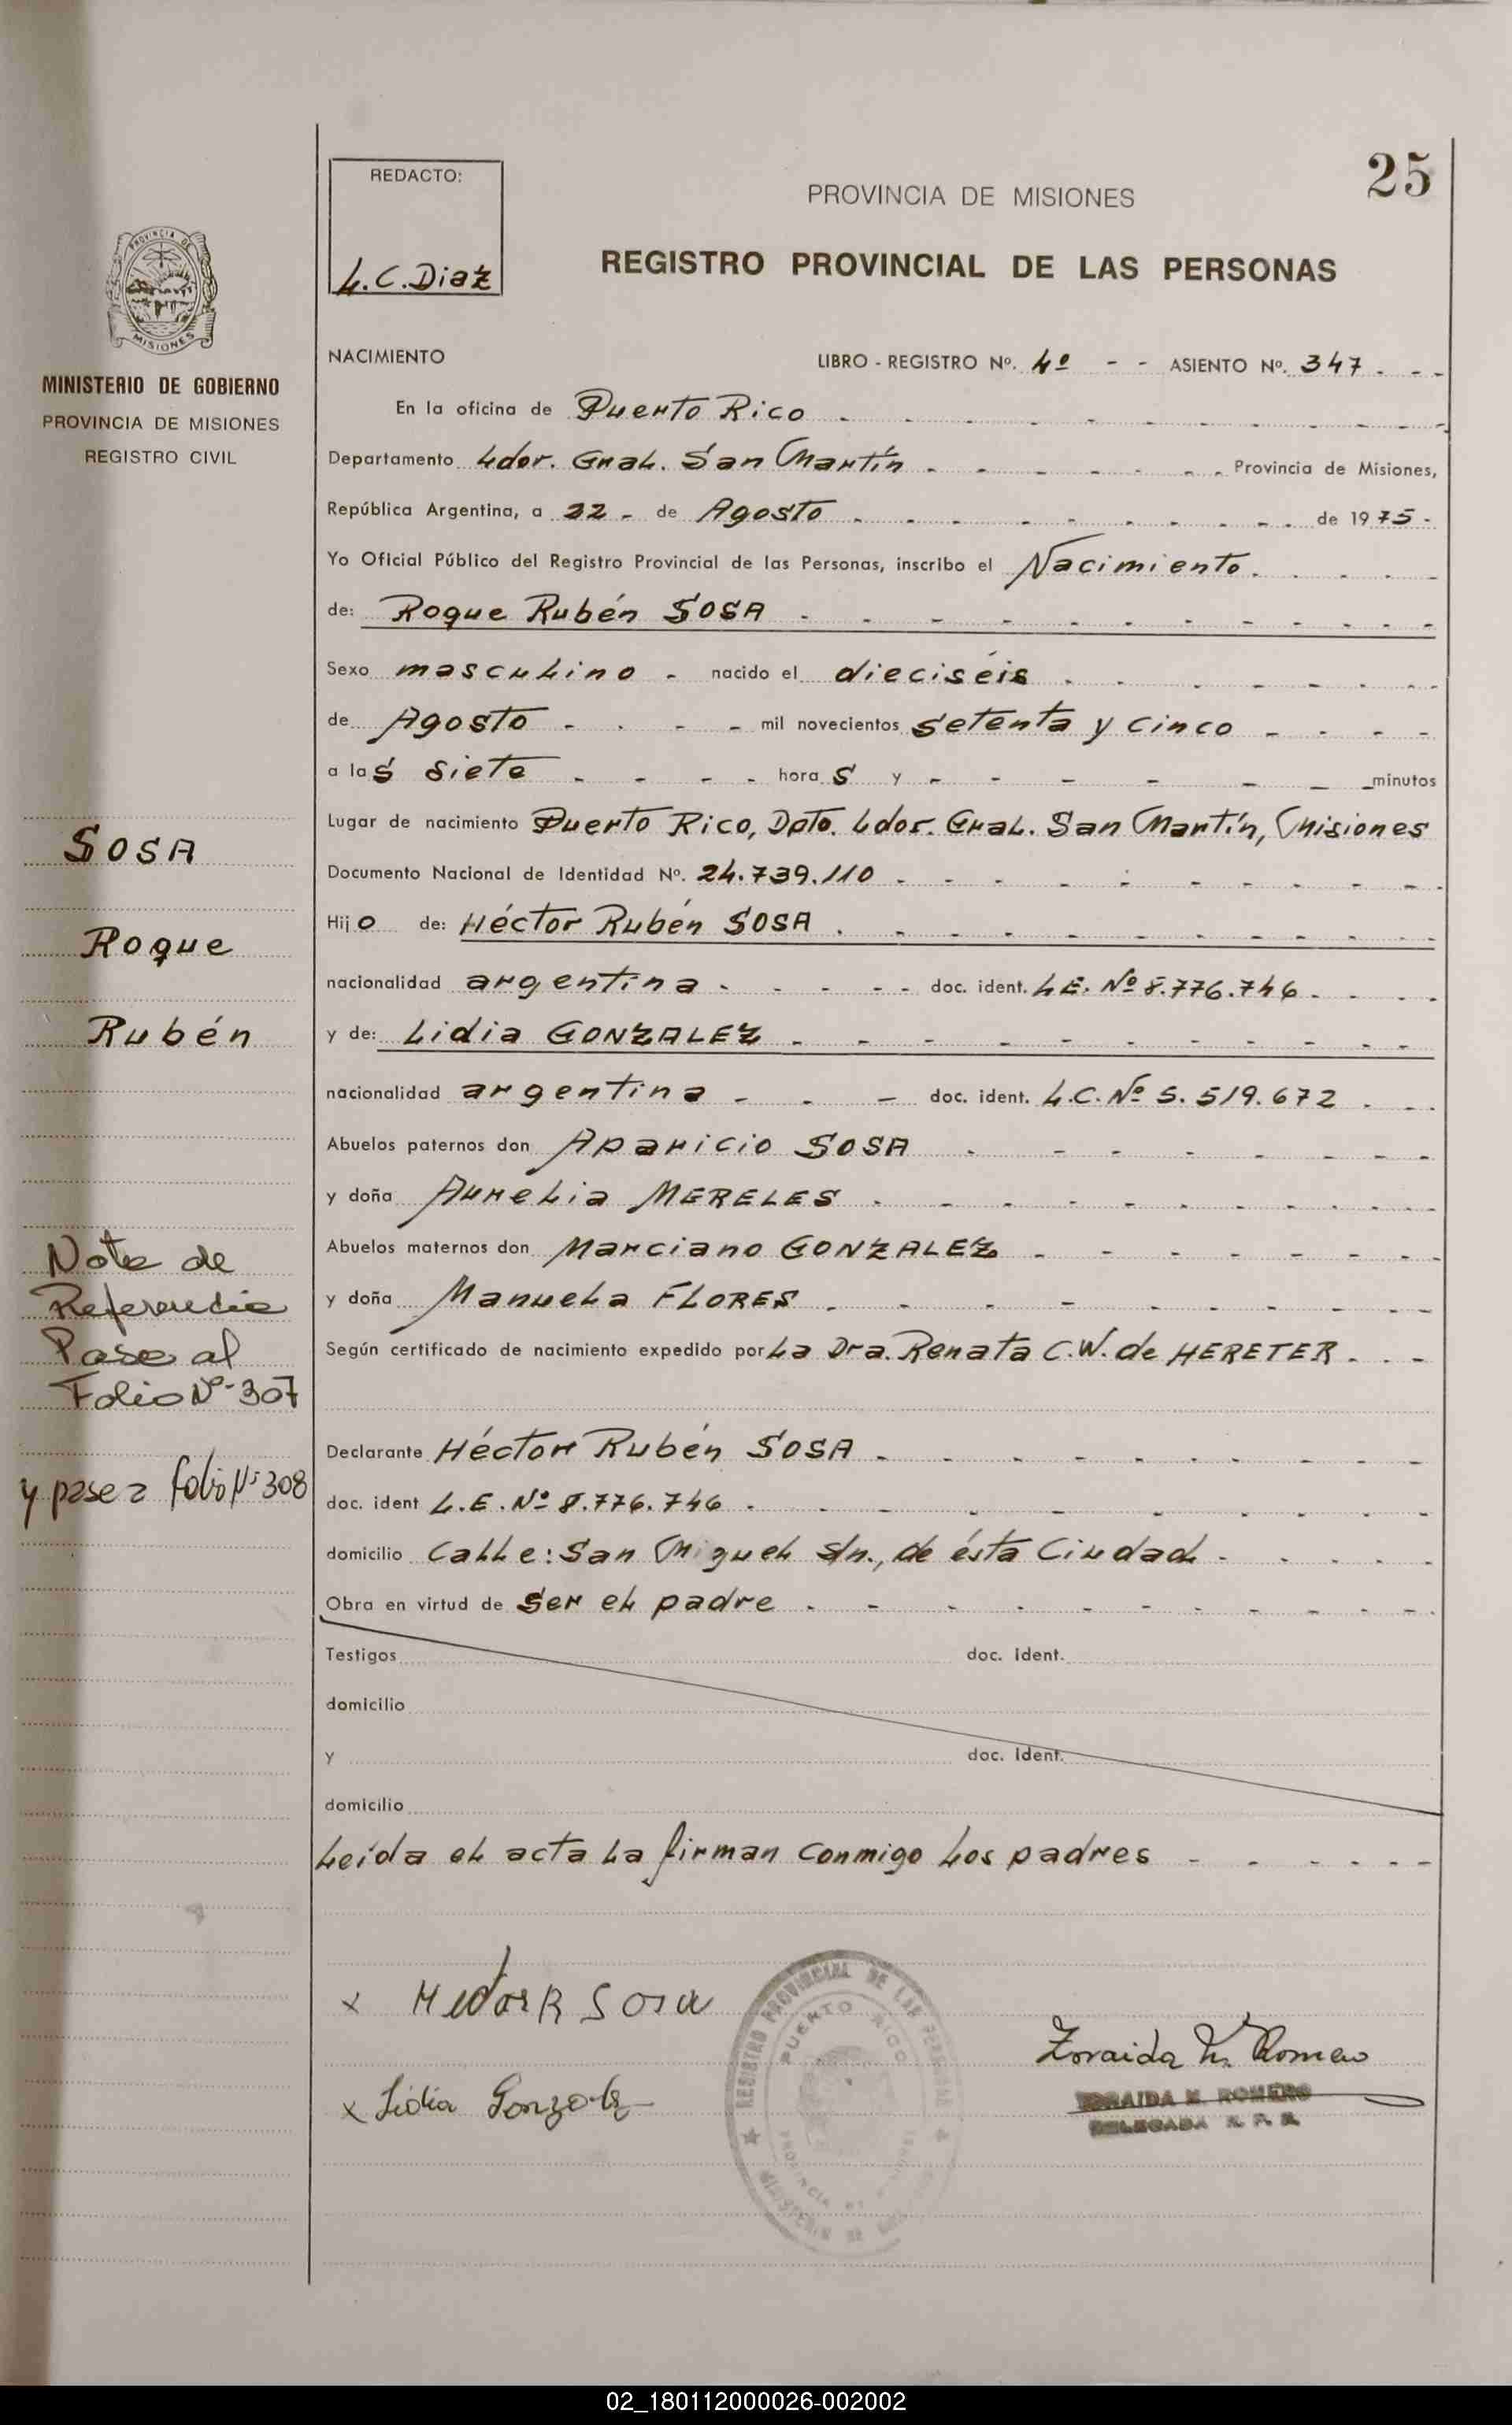 REDACTO:
L.C.Diaz
25
PROVINCIA DE MISIONES
REGISTRO PROVINCIAL DE LAS PERSONAS
PROVINCIA DE
MISIONES
MINISTERIO DE GOBIERNO
PROVINCIA DE MISIONES
REGISTRO CIVIL
NACIMIENTO LIBRO - REGISTRO Nº. 4º - - ASIENTO Nº. 347 . - -
En la oficina de Puerto Rico
Departamento Ldor. Gral. San Martín Provincia de Misiones,
República Argentina, a 22 - de Agosto de 1975 -
Yo Oficial Público del Registro Provincial de las Personas, inscribo el Nacimiento
de: Roque Rubén SOSA
Sexo masculino - nacido el dieciséis
de Agosto mil novecientos setenta y cinco
a las siete horas y - minutos
Lugar de nacimiento Puerto Rico, Dpto. Ldor. Gral. San Martín, Misiones
Documento Nacional de Identidad Nº. 24.739.110
Hijo de: Héctor Rubén SOSA
nacionalidad argentina doc. ident. L.E. Nº 8.776.746
y de: Lidia GONZALEZ
nacionalidad argentina doc. ident. L.C. Nº 5.519.672
Abuelos paternos don Aparicio SOSA
y doña Aurelia MERELES
Abuelos maternos don Marciano GONZALEZ
y doña Manuela FLORES
Según certificado de nacimiento expedido por La Dra. Renata C.W. de HERETER
Declarante Héctor Rubén SOSA
doc. ident L.E. Nº 8.776.746
domicilio Calle: San Miguel s/n., de ésta Ciudad
Obra en virtud de ser el padre
Testigos doc. ident.
domicilio
y doc. ident.
domicilio
Leída el acta la firman conmigo los padres
SOSA
Roque
Rubén
Nota de
Referencia
Pase al
Folio Nº 307
y pase a folio Nº 308
x Hector R Sosa
x Lidia Gonzalez
Zoraida M. Romero
ZORAIDA M. ROMERO
DELEGADA R. P. P.
REGISTRO PROVINCIAL DE LAS PERSONAS
PUERTO RICO
PROVINCIA DE
MINISTERIO DE
02_180112000026-002002